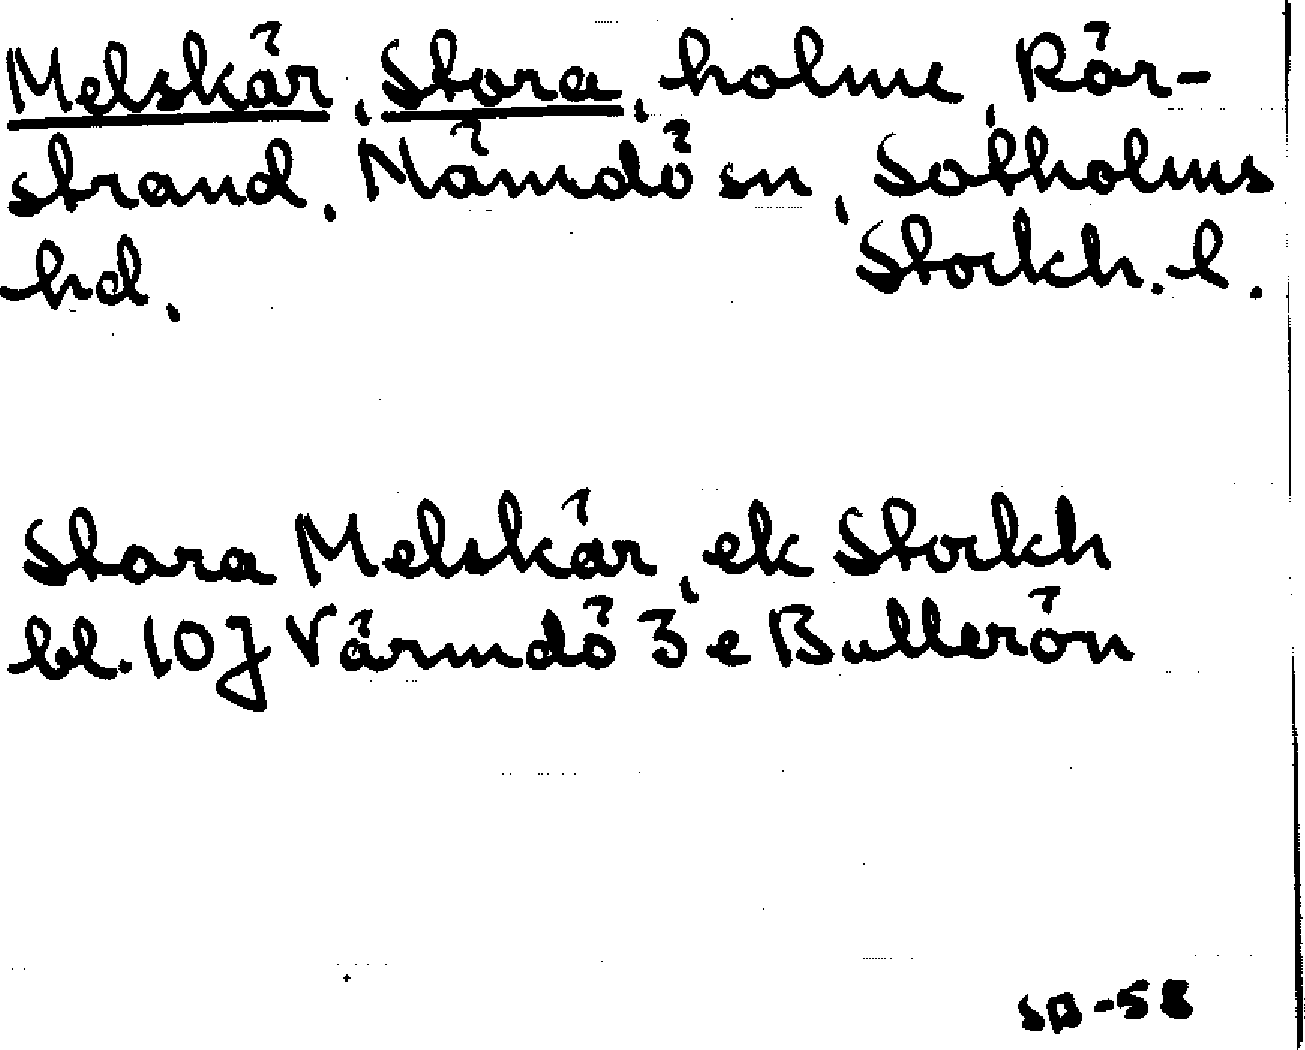 Melskär, Stora, holme, Rör-
strand, Nämdö sn, Sotholms
hd.                    Stockh. l.
Stora Melskär, ek Stockh
bl. 10J Värmdö 3 e Bullerön
SB-58